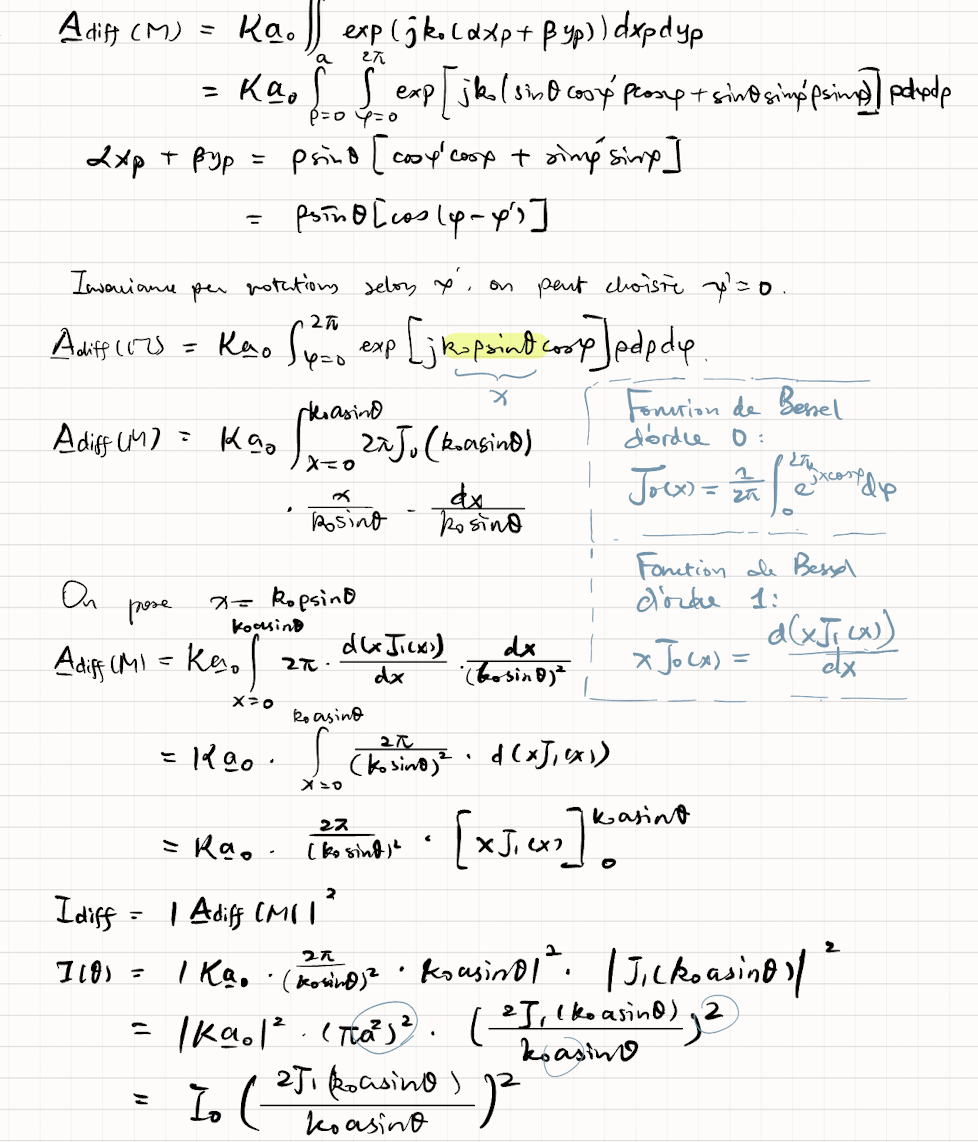 A̲diff (M) = K a̲₀ ∬ exp (j k₀ (α xp + β yp)) dxp dyp
= K a̲₀ ∫_{ρ=0}^{a} ∫_{φ=0}^{2π} exp [ j k₀ ( sinθ cosφ' ρcosφ + sinθ sinφ' ρsinφ ) ] ρdφdρ
α xp + β yp = ρ sinθ [ cosφ' cosφ + sinφ' sinφ ]
= ρ sinθ [ cos (φ - φ') ]
Invariance par rotations selon φ', on peut choisir φ' = 0.
A̲diff (M) = K a̲₀ ∫_{φ=0}^{2π} exp [ j k₀ρsinθ cosφ ] ρdρ dφ.
x
A̲diff (M) = K a̲₀ ∫_{x=0}^{k₀asinθ} 2π J₀ (k₀asinθ)
· x/(k₀sinθ) · dx/(k₀sinθ)
Fonction de Bessel
d'ordre 0 :
J₀(x) = 1/2π ∫_0^{2π} e^{jxcosφ} dφ
Fonction de Bessel
d'ordre 1:
x J₀(x) = d(xJ₁(x))/dx
On pose x = k₀ρsinθ
A̲diff (M) = K a̲₀ ∫_{x=0}^{k₀asinθ} 2π · d(xJ₁(x))/dx · dx/(k₀sinθ)²
= K a̲₀ · ∫_{x=0}^{k₀asinθ} 2π/(k₀sinθ)² · d(xJ₁(x))
= K a̲₀ · 2π/(k₀sinθ)² · [ x J₁(x) ]_0^{k₀asinθ}
Idiff = | A̲diff (M) |²
I(θ) = | K a̲₀ · 2π/(k₀sinθ)² · k₀asinθ |² · | J₁(k₀asinθ) |²
= |K a̲₀|² · (πa²)² · ( 2J₁(k₀asinθ) / k₀asinθ )²
= I₀ ( 2J₁(k₀asinθ) / k₀asinθ )²